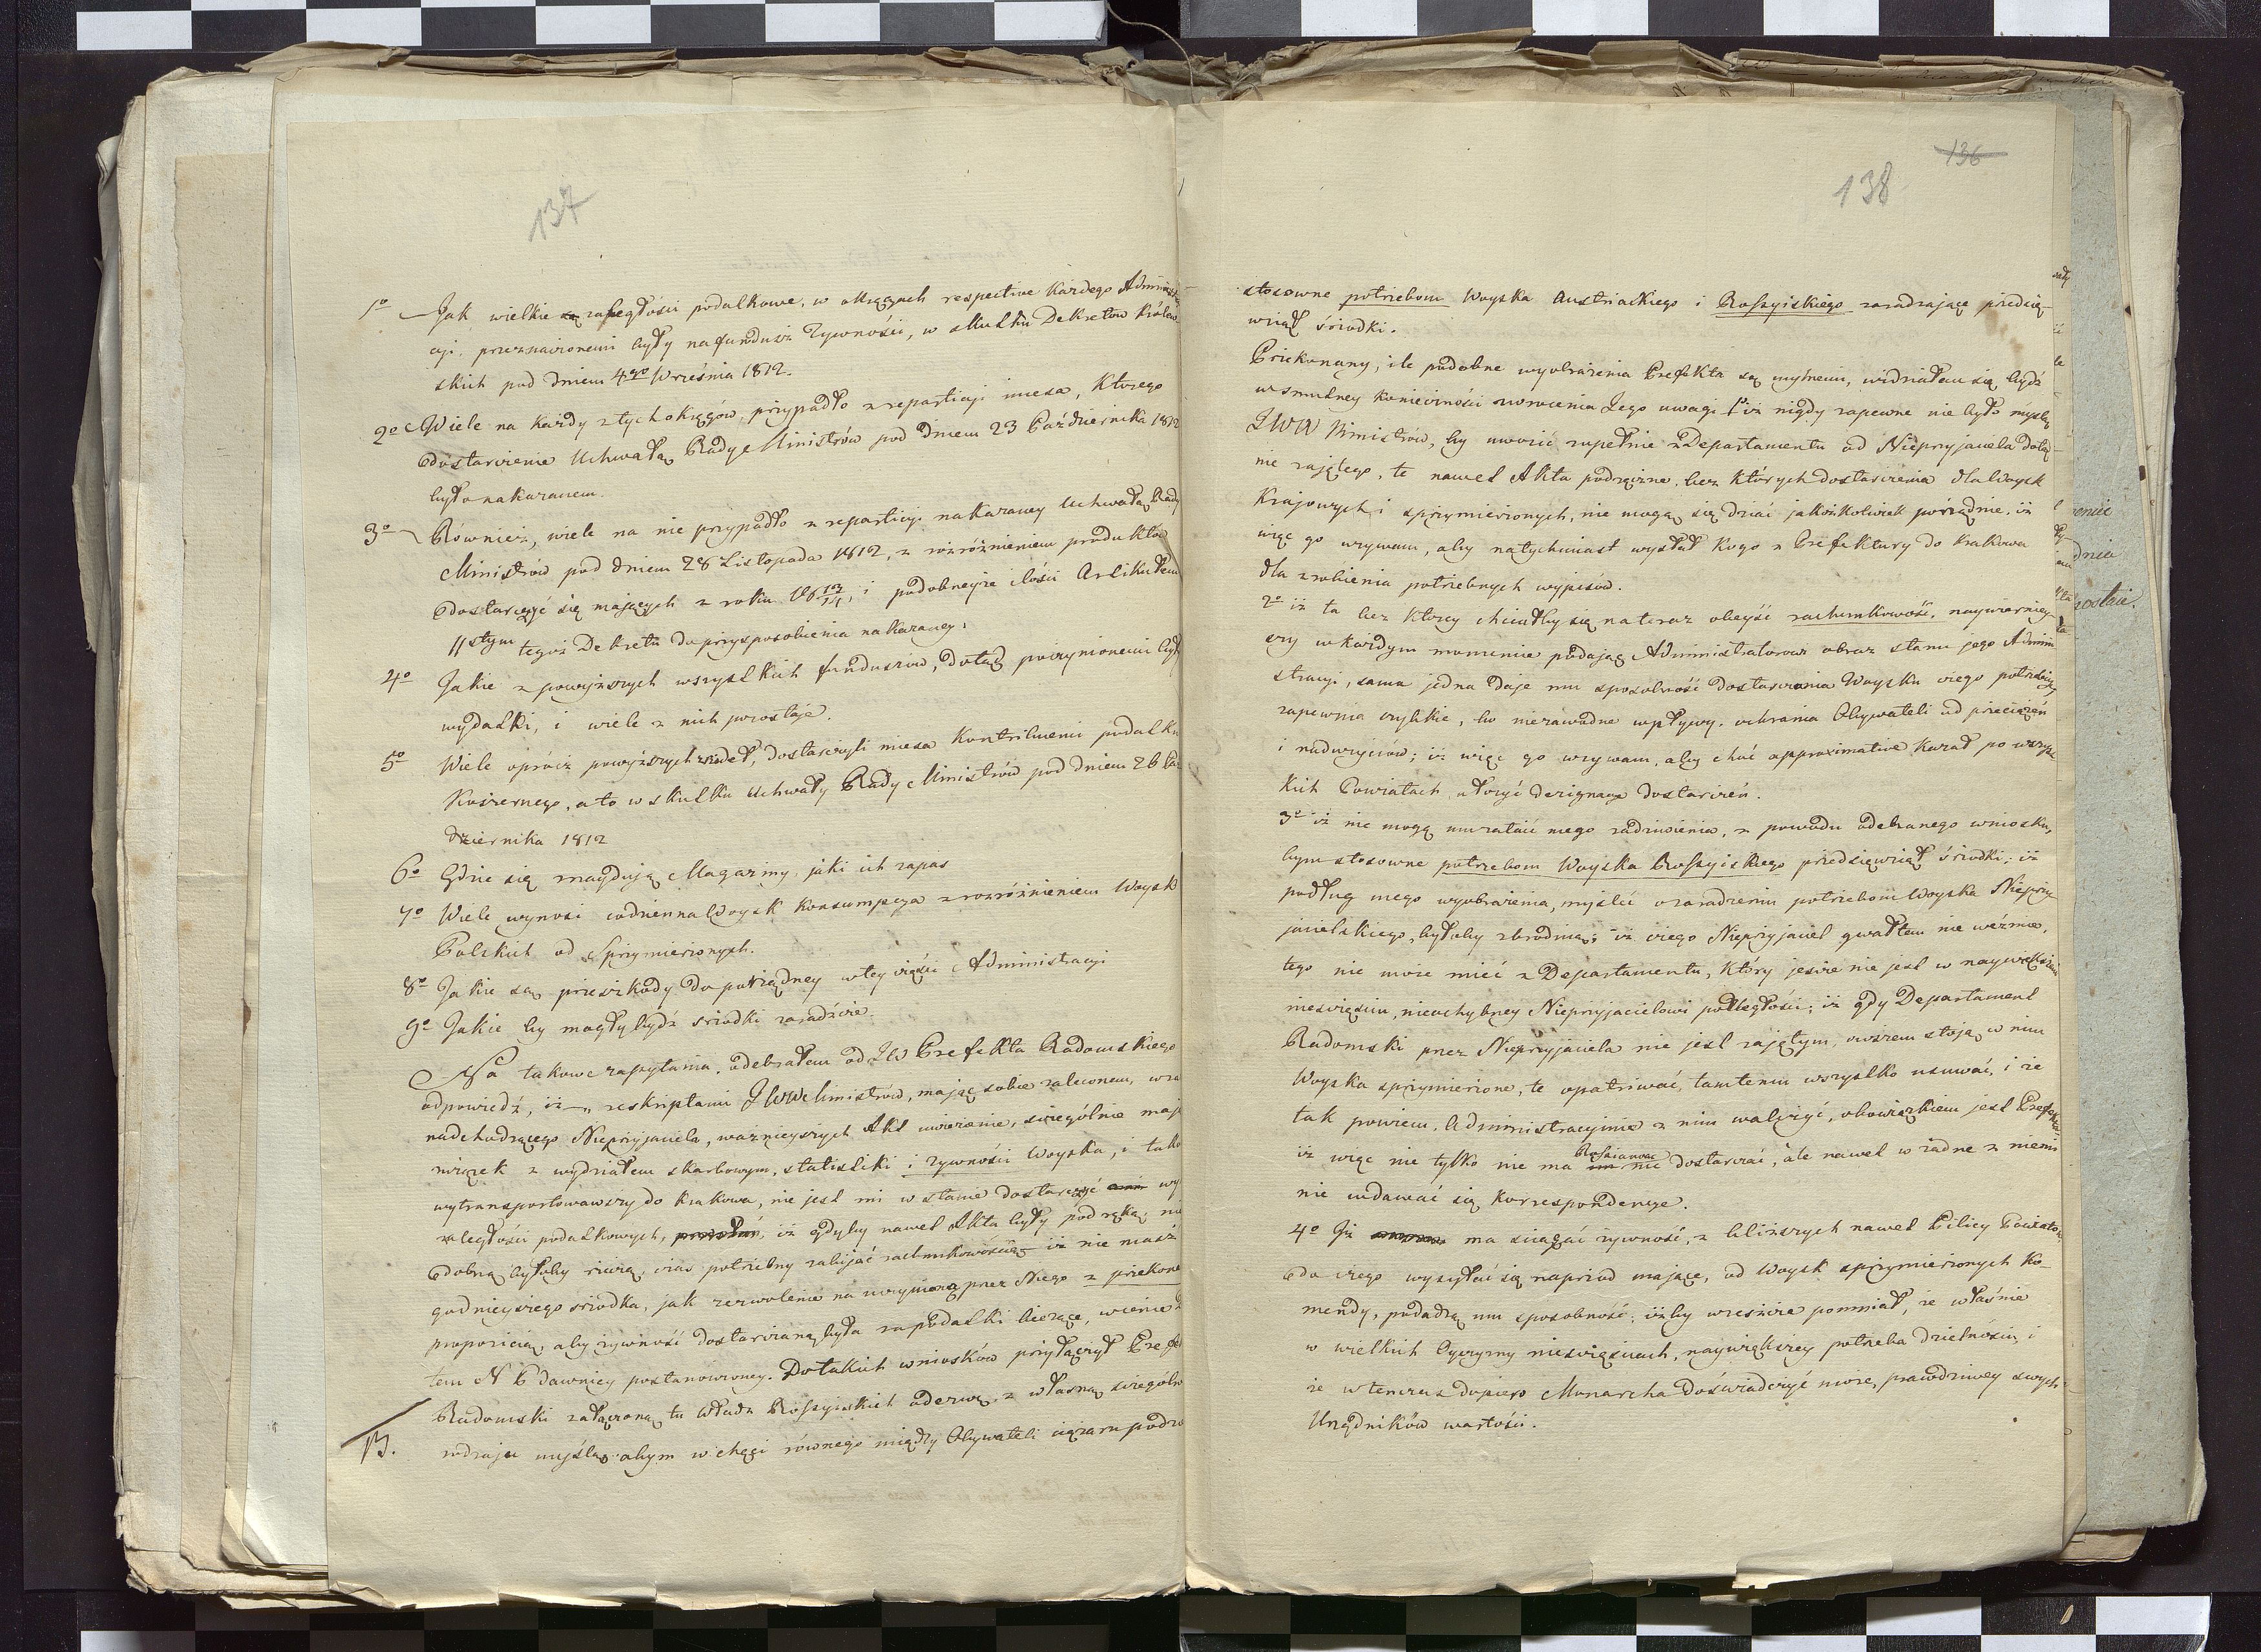 137
1º Jak wielkie są zaległości podatkowe, w okręgach respective każdego Administra
cji, przeznaczonemi były na fundusz Żywności, w skutku Dekretów Królew-
skich pod dniem 4go Września 1812.
2º Wiele na każdy z tych okręgów, przypadło z repartycji mięsa, którego
dostarczenie Uchwałą Rady Ministrów pod dniem 23 Października 1812
było nakazanem.
3º Również, wiele na nie przypadło z repartycji nakazaney Uchwałą Rady
Ministrów pod dniem 28 Listopada 1812, z rozróżnieniem produktów
dostarczyć się mających z roku 18 12/13, i podobneyże ilości Artikułem
11stym tegoż Dekretu do przysposobienia nakazaney.
4º Jakie z powyższych wszystkich funduszów, dotąd poczynionemi były
wydatki, i wiele z nich pozostaje.
5º Wiele oprócz powyższych źródeł, dostarczyli mięsa Kontribuenci podatku
Koszernego, a to w skutku Uchwały Rady Ministrów pod dniem 26 Paź
dziernika 1812
6º Gdzie się znaydują Magazyny, jaki ich zapas
7º Wiele wynosi codzienna Woysk Konsumpcya z rozróżnieniem Woysk
Polskich od Sprzymierzonych.
8º Jakie są przeszkody do porządney w tey części Administracyi
9º Jakie by mogły bydź środki zaradcze.
Na takowe zapytania, odebrałem od JW Prefekta Radomskiego
odpowiedź, iż — reskriptami JWW Ministrów, mając sobie zaleconem, wra
nadchodzącego Nieprzyjaciela, ważnieyszych Akt uwiezienie, szczególnie mają
związek z wydziałem skarbowym, statistiki i żywności Woyska, i tako
wytransportowawszy do Krakowa, nie jest mi w stanie dostarczyć wy
zaległości podatkowych, iż gdyby nawet Akta były pod ręką, nie
dobną byłoby rzeczą, czas potrzebny zabijać rachunkowością — iż nie masz
godnieyszego środka, jak zezwolenie na uczynioną przez Niego z przekona
propozicią, aby żywność dostarczaną była za podatki bieżące, w cenie
tem N 6 dawniey postanowioney. Do takich wniosków przyłączył Prefe
Radomski załączoną tu Władz Rossyiskich odezwę, z własną szczególn
B. rodzaju myślą: abym w chęci równego między Obywateli ciężaru podzi
136
138
stosowne potrzebom Woyska Austriackiego i Rossyiskiego zaradzające przedsię-
wziął środki.
Przekonany, ile podobne wyobrażenia Prefekta są mylnemi, widziałem się bydź
w smutney konieczności zwrócenia Jego uwagi 1º iż nigdy zapewne nie było myślą
JWW Ministrów, by uwozić zupełnie z Departamentu od Nieprzyjaciela dotąd
nie zajętego, te nawet Akta podręczne, bez których dostarczenia dla Woysk
Krajowych i sprzymierzonych, nie mogą się dziać jakożkolwiek porządnie, iż
więc go wzywam, aby natychmiast wysłał kogo z Prefektury do Krakowa
dla zrobienia potrzebnych wypisów.
2º iż ta bez którey chciałby się na teraz obeyść rachunkowość, naywierniey-
szy w każdym momencie podając Administratorowi obraz stanu jego Admini
stracyi, sama jedna daje mu sposobność dostarczania Woysku czego potrzebuje,
zapewnia szybkie, bo niezawodne wpływy, ochrania Obywateli od przeciążeń
i nadużyciów; iż więc go wzywam, aby choć approximative kazał po wszyst
kich Powiatach, ułożyć designacye dostarczeń.
3º iż nie mogą umrataić mego zadziwienia, z powodu odebranego wniosku,
bym stosowne potrzebom Woyska Rossyiskiego przedsięwziął środki; iż
podług mego wyobrażenia, myśleć o zaradzeniu potrzebom Woyska Nieprzy
jacielskiego, byłoby zbrodnią; iż czego Nieprzyjaciel gwałtem nie weźmie,
tego nie może mieć z Departamentu, który jeszcze nie jest w naywiększem
nieszczęściu, nieochybney Nieprzyjacielowi podległości; iż gdy Departament
Radomski przez Nieprzyjaciela nie jest zajętym, owszem stoją w nim
Woyska sprzymierzone, te opatrywać, tamtemu wszystko usuwać, i że
tak powiem, Administracyinie z nim walczyć, obowiązkiem jest Prefekta;
iż więc nie tylko nie ma Rossianom nic dostarczać, ale nawet w żadne z niemi
nie wdawać się korrespondencye.
4º Iż ma ściągać żywność, z bliższych nawet Pilicy Powiatów.
do czego wysyłać się naprzod mające, od Woysk sprzymierzonych Ko-
mendy, podadzą mu sposobność; iżby wreszcie pomniał, że właśnie
w wielkich Oyczyzny nieszczęściach, naywiększey potrzeba dzielności, i
że wtenczas dopiero Monarcha doświadczyć może, prawdziwey swych
Urzędników wartości.